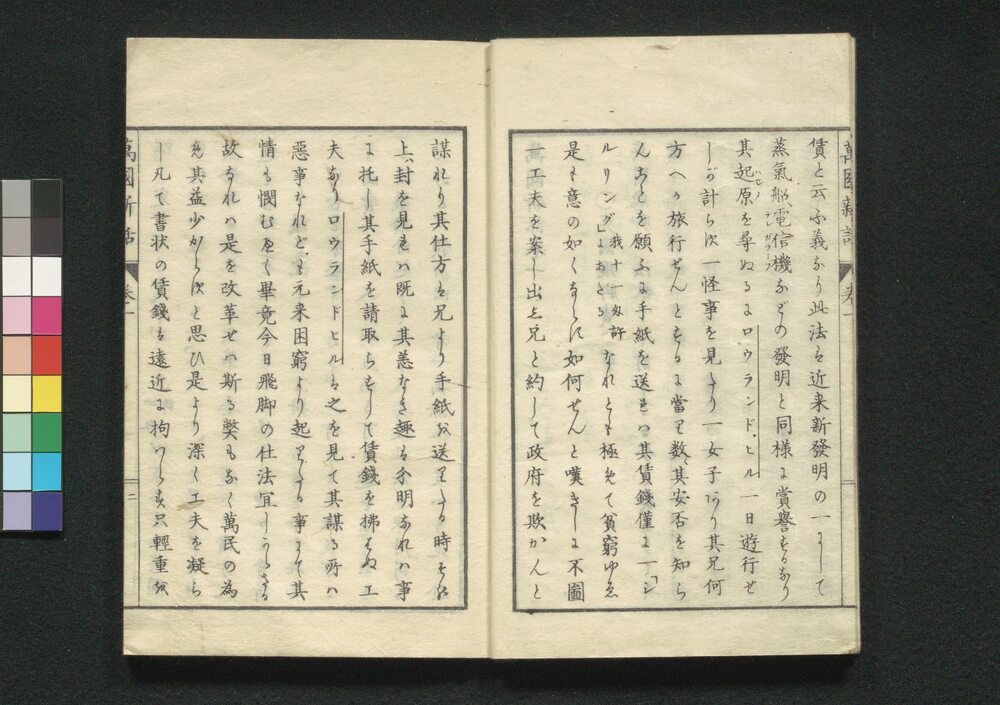 賃と云ふ義なり此法は近来新發明の一にして
蒸氣船電信機などの發明と同様に賞譽するなり
其起原を尋ぬるにロウランド、ヒル一日遊行せ
しが計らず一怪事を見たり一女子あり其兄何
方へか旅行せんとするに當り数〻其安否を知ら
んことを願ふに手紙を送れハ其賃錢僅に一「シ
ルリング」我十一匁許にあたるなれとも極めて貧窮ゆゑ
是も意の如くならず如何せんと嘆きしに不圖
一工夫を案し出し兄と約して政府を欺かんと
謀れり其仕方は兄より手紙を送りたる時其
上封を見れハ既に其恙なき趣を分明なれハ事
に托し其手紙を請取らずして賃錢を拂はぬ工
夫なりロウランドヒルは之を見て其謀る所ハ
惡事なれども元来困窮より起りたる事にて其
情も憫むべく畢竟今日飛脚の仕法宜しからざる
故なれハ是を改革せハ斯る弊もなく萬民の為
め其益少からずと思ひ是より深く工夫を凝ら
し凡て書状の賃錢は遠近に拘ハらず只輕重を
萬國新話
巻一
二